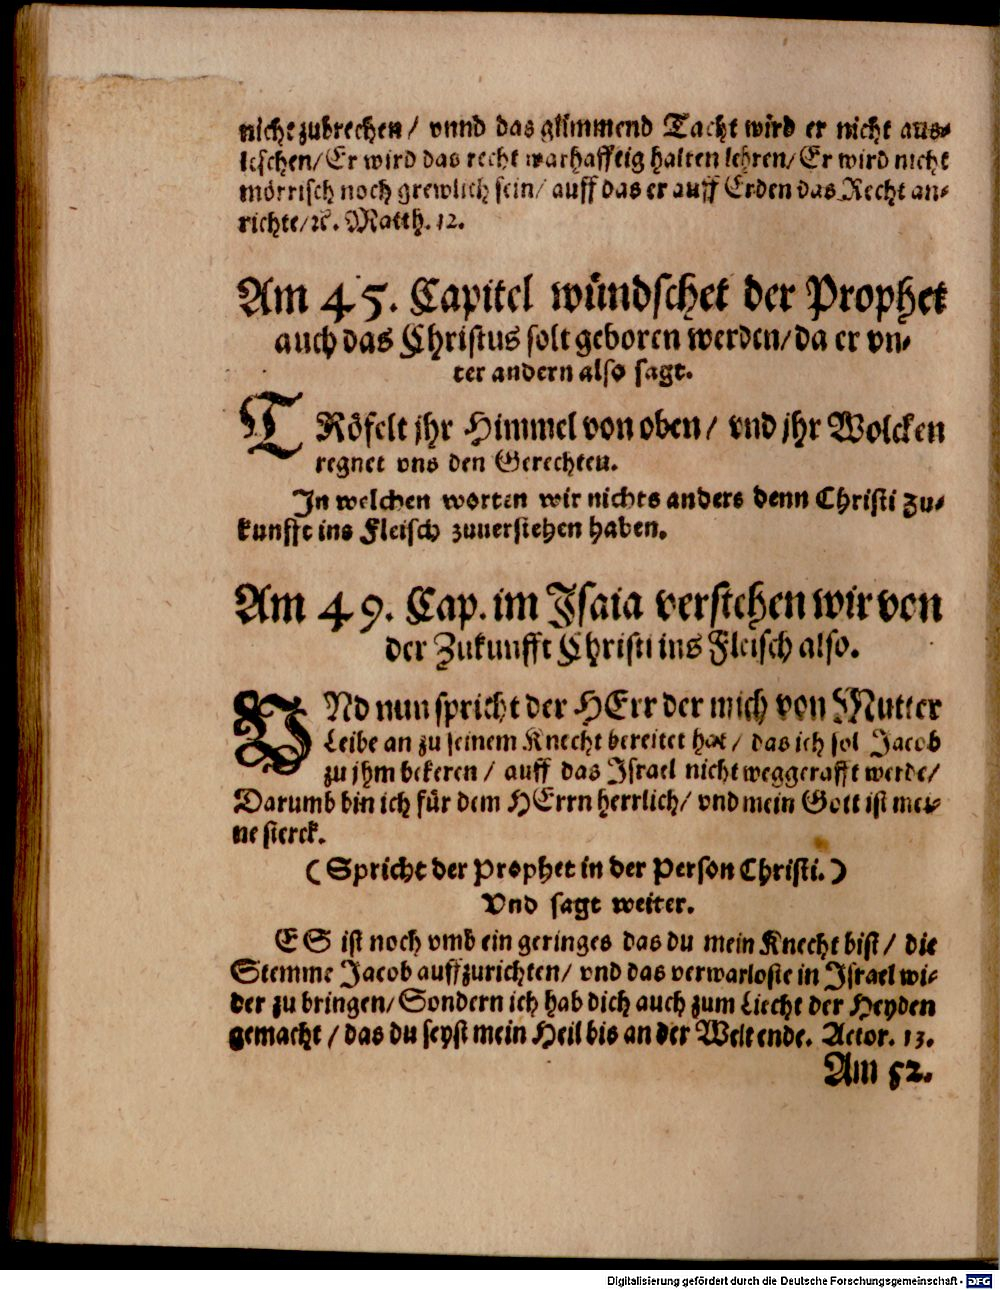 nicht zubrechen / vnnd das glimmend Tacht wird er nicht aus-
leschen / Er wird das recht warhafftig halten lehren / Er wird nicht
mörrisch noch grewlich sein / auff das er auff Erden das Recht an-
richte / ꝛc. Matth. 12.
Am 45. Capitel wündschet der Prophet
auch das Christus solt geboren werden / da er vn-
ter andern also sagt.
TRöfelt jhr Himmel von oben / vnd jhr Wolcken
regnet vns den Gerechten.
In welchen worten wir nichts anders denn Christi zu-
kunfft ins Fleisch zuuerstehen haben.
Am 49. Cap. im Isaia verstehen wir von
der Zukunfft Christi ins Fleisch also.
VNd nun spricht der HErr der mich von Mutter
Leibe an zu seinem Knecht bereitet hat / das ich sol Jacob
zu jhm bekeren / auff das Israel nicht weggerafft werde /
Darumb bin ich für dem HErrn herrlich / vnd mein Gott ist mei-
ne sterck.
( Spricht der Prophet in der Person Christi. )
Vnd sagt weiter.
ES ist noch vmb ein geringes das du mein Knecht bist / die
Stemme Jacob auffzurichten / vnd das verwarloste in Israel wi-
der zu bringen / Sondern ich hab dich auch zum Liecht der Heyden
gemacht / das du seyst mein Heil bis an der Welt ende. Actor. 13.
Am 52.
Digitalisierung gefördert durch die Deutsche Forschungsgemeinschaft - DFG